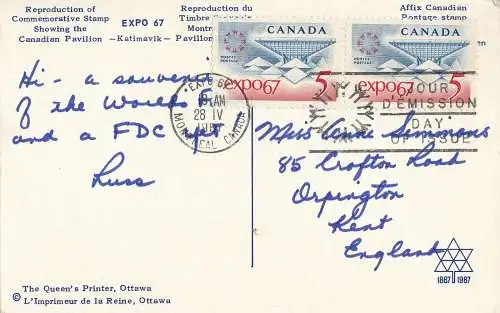 Reproduction of
Commemorative Stamp
Showing the
Canadian Pavilion –Katimavik– Pavilion
EXPO 67
Reproduction du
Timbre
Montr
Affix Canadian
Postage stamp
CANADA
POSTES POSTAGE
expo67 5
CANADA
POSTES POSTAGE
expo67 5
EXPO 67
AM
28 IV
MONTREAL, CANADA
JOUR
D'ÉMISSION
DAY
OF ISSUE
Hi - a souvenir
of the Worlds F
and a FDC yet
Russ
Miss Anne Simmons
85 Crofton Road
Orpington
Kent
England
The Queen's Printer, Ottawa
© L'Imprimeur de la Reine, Ottawa
1867 1967